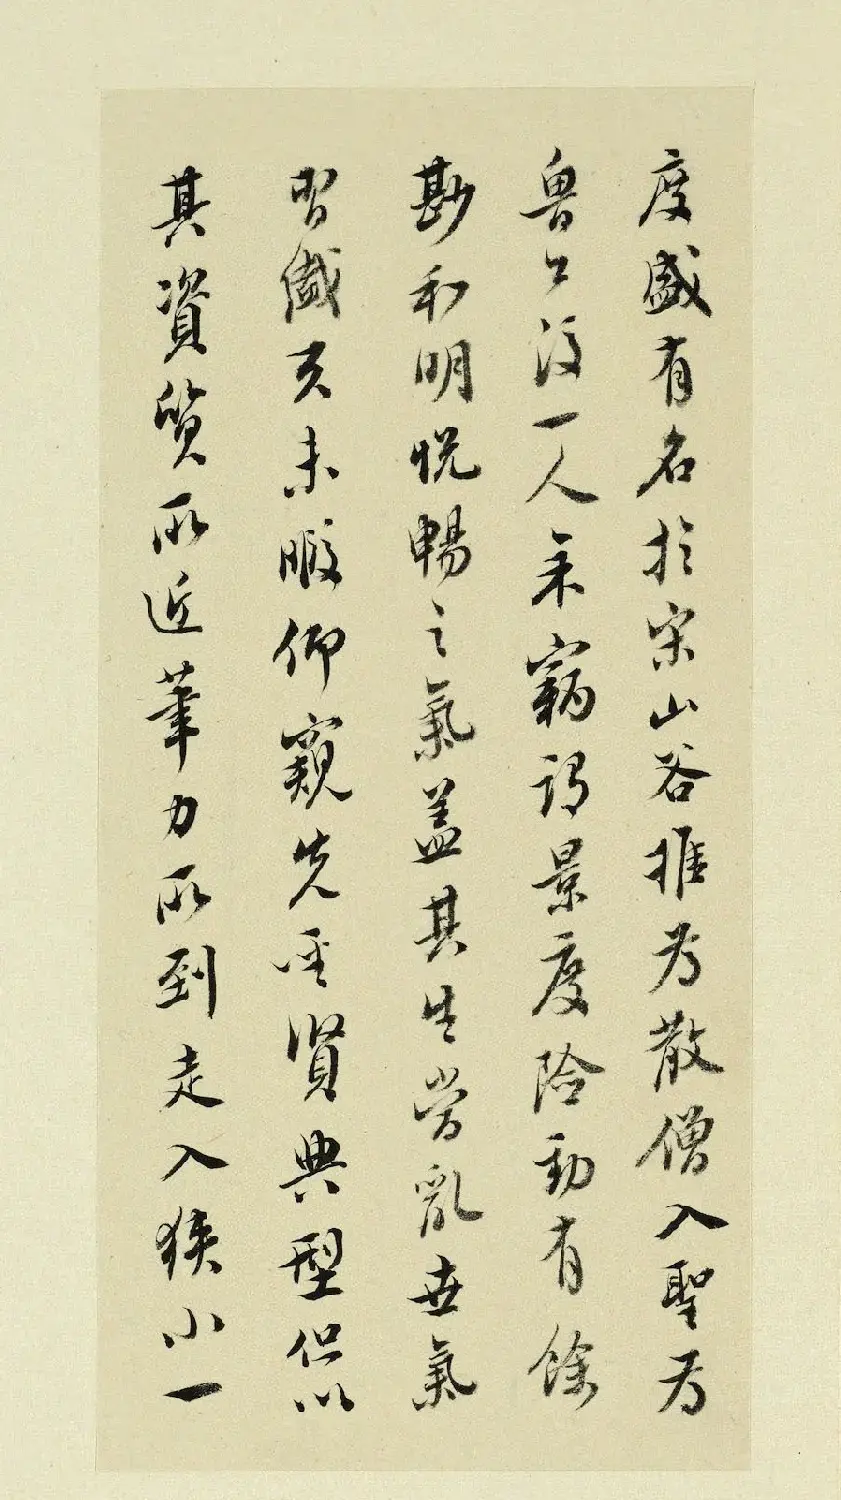 度盛有名於宋山谷推为散僧入聖为
魯公後一人米竊謂景度险動有餘
尠和明悦暢之氣盖其生當亂世氣
習儎又未暇仰窺先圣賢典型但以
其資質所近筆力所到走入狹小一